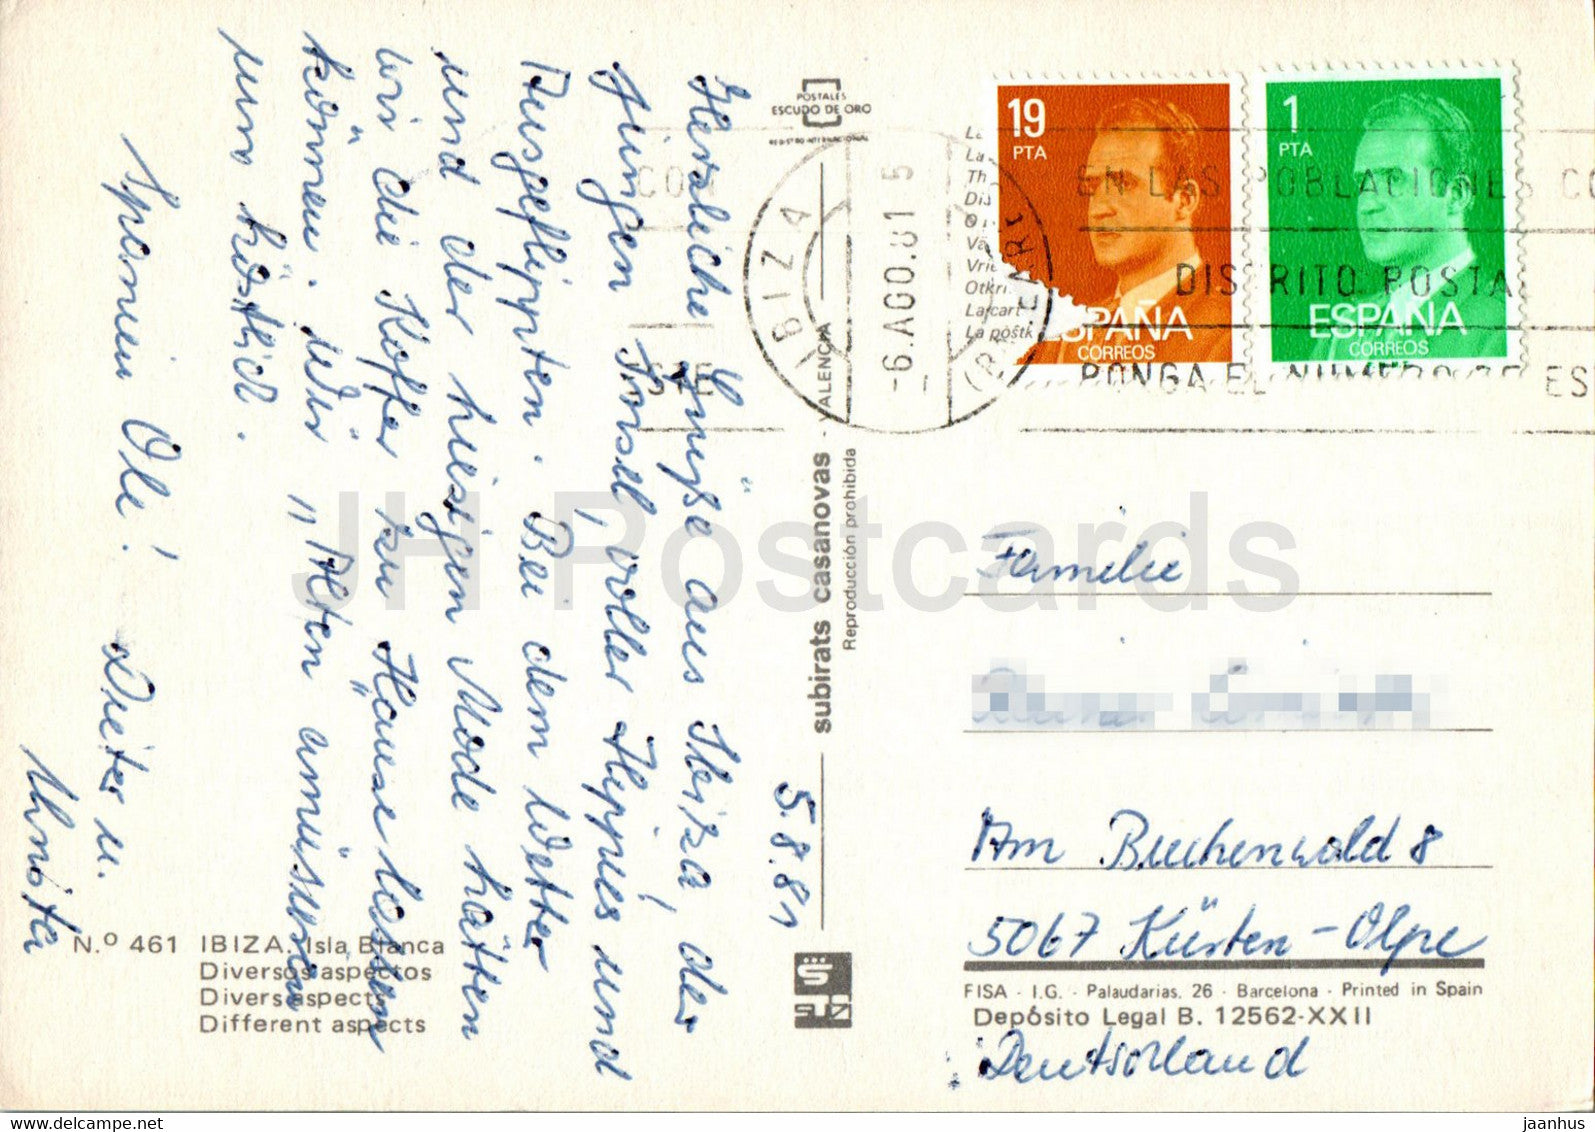 5.8.81
Herzliche Grüße aus Ibiza, der
jungen Insel, voller Hippies und
Ausgeflippten. Bei dem Wetter
und der hiesigen Mode hätten
wir die Koffer zu Hause lassen
können. Wir "Alten" amüsieren
uns köstlich.
Spanien Ole! Dieter u.
N.º 461 IBIZA. Isla Blanca
Diversos aspectos
Divers aspects
Different aspects
POSTALES
ESCUDO DE ORO
REGISTRO INTERNACIONAL
subirats casanovas - VALENCIA
Reproducción prohibida
19
PTA
ESPAÑA
CORREOS
1
PTA
ESPAÑA
CORREOS
IBIZA
-6.AGO.81 5
EN LAS POBLACIONES CO
DISTRITO POSTA
PONGA EL NUMERO DE ES
Familie
Am Buchenwald 8
5067 Kürten-Olpe
FISA - I.G. - Palaudarias, 26 - Barcelona - Printed in Spain
Depósito Legal B. 12562-XXII
Deutschland
JH Postcards
jaanhus